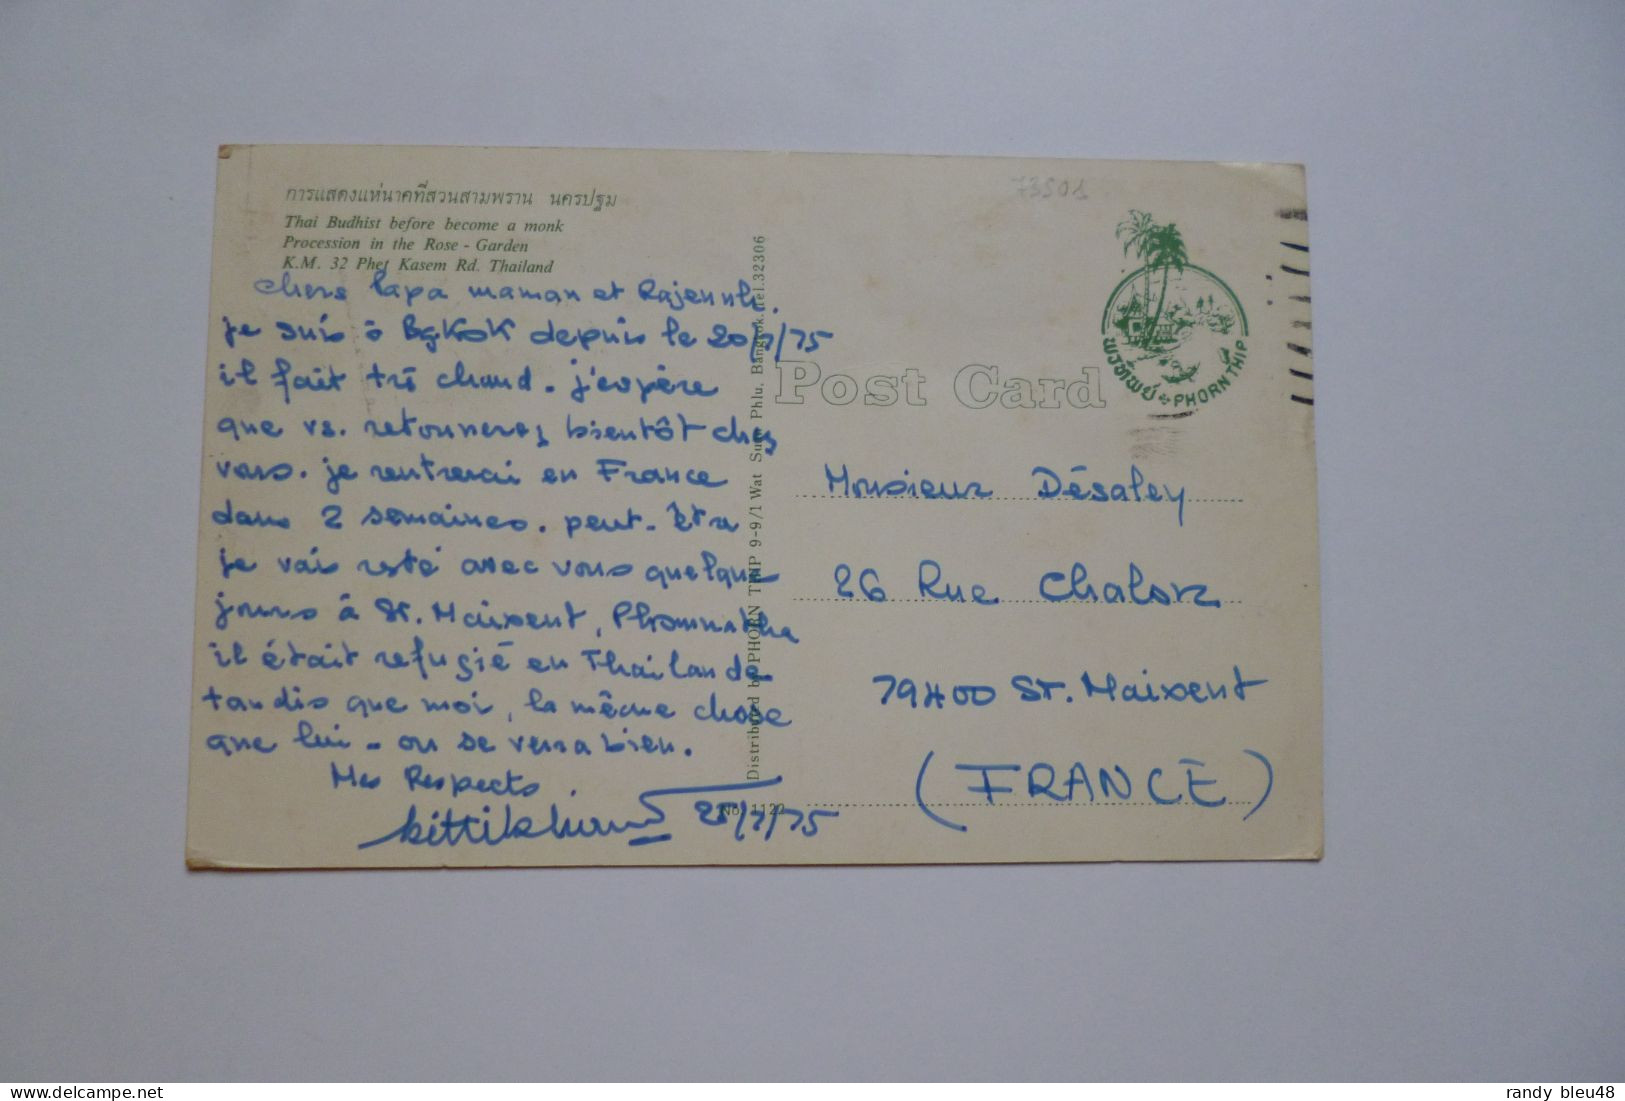 การแสดงแห่นาคที่สวนสามพราน นครปฐม
Thai Budhist before become a monk
Procession in the Rose - Garden
K.M. 32 Phet Kasem Rd. Thailand
chers papa maman et
je suis à BgKoK depuis le 20/7/75
il fait trè chaud. j'espère
que vs. retournerez bientôt chez
vous. je rentrerai en France
dans 2 semaines. peut-être
je vais resté avec vous quelque
jours à St. Maixent,
il était refugié en Thailande
tandis que moi, la même chose
que lui - on se verra bien.
Mes Respects.
25/7/75
Distributed by PHORN THIP 9-9/1 Wat Suan Phlu. Bangkok. Tel. 32306
No. 1122
73501
พรทิพย์ PHORN THIP
Post Card
Monsieur Désaley
26 Rue Chalon
79400 St. Maixent
(FRANCE)
delcampe.net
randy bleu48